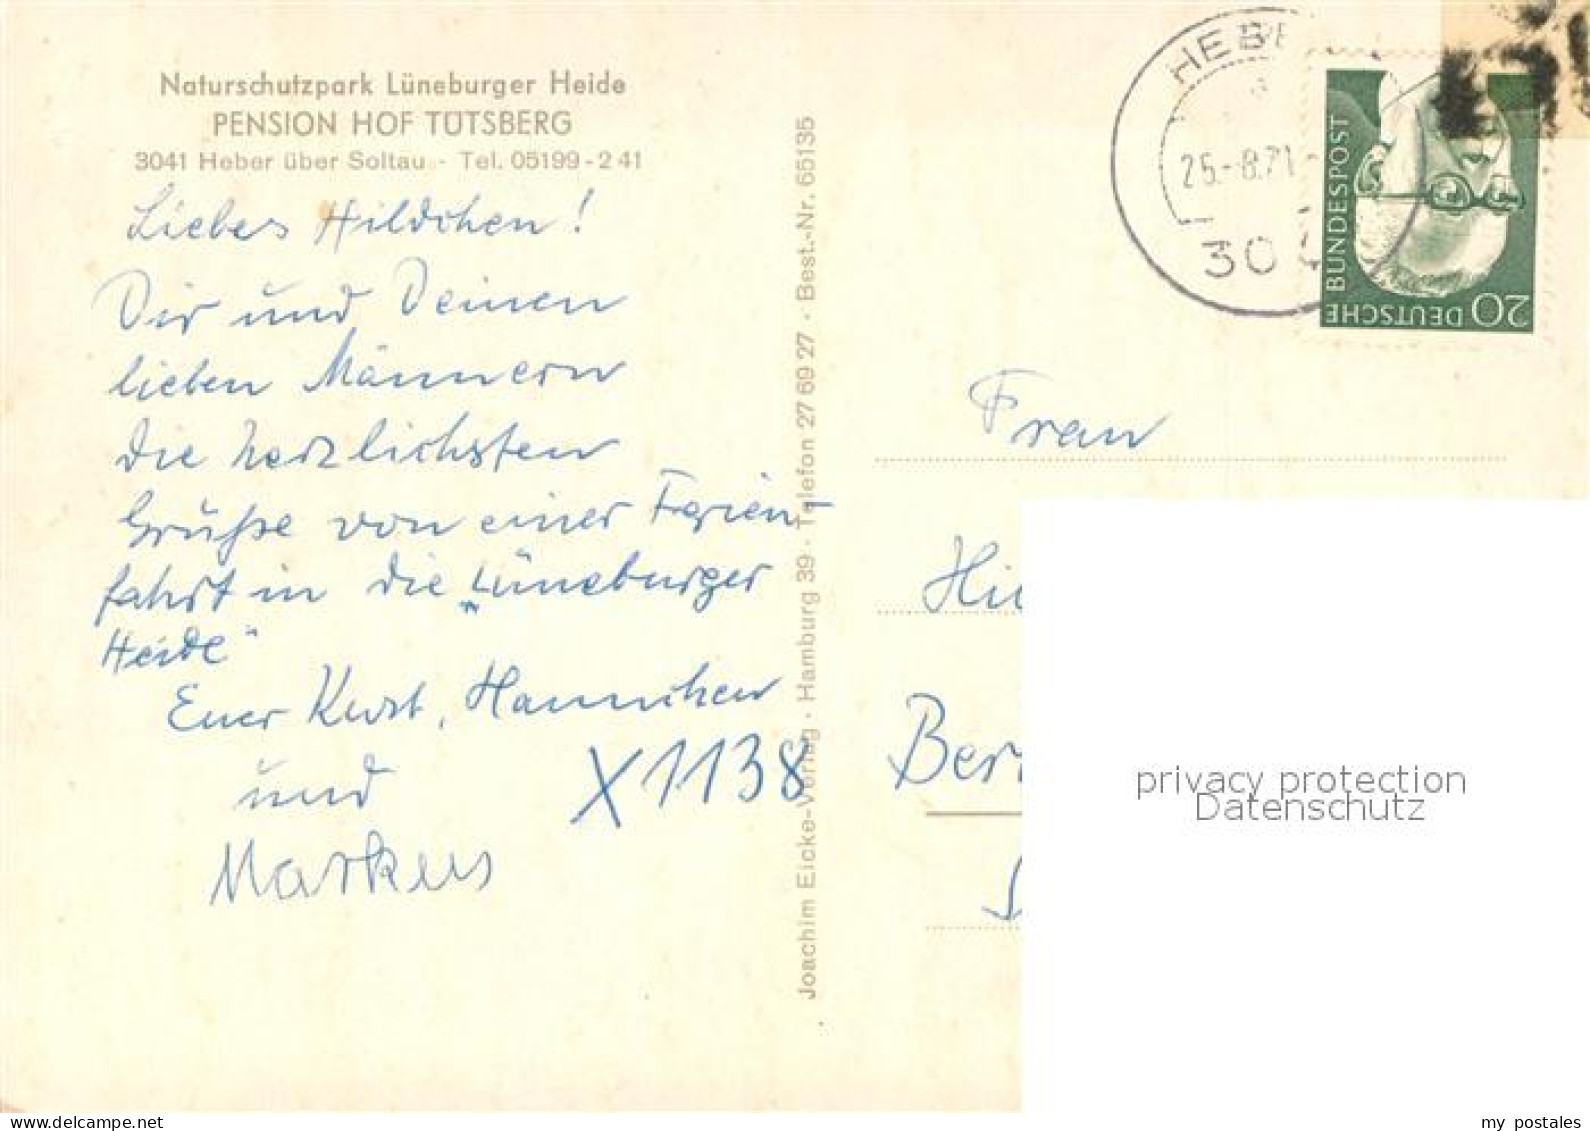 Naturschutzpark Lüneburger Heide
PENSION HOF TÜTSBERG
3041 Heber über Soltau - Tel. 05199-2 41
Liebes Hildchen!
Dir und Deinen
lieben Männern
die herzlichsten
Grüße von einer Ferien-
fahrt in die „Lüneburger
Heide"
Euer Kurt, Hannchen
und
Markus
X1138
Joachim Eicke-Verlag · Hamburg 39 · Telefon 27 69 27 · Best.-Nr. 65135
25.-8.71
30
DEUTSCHE BUNDESPOST
20
Frau
privacy protection
Datenschutz
my postales